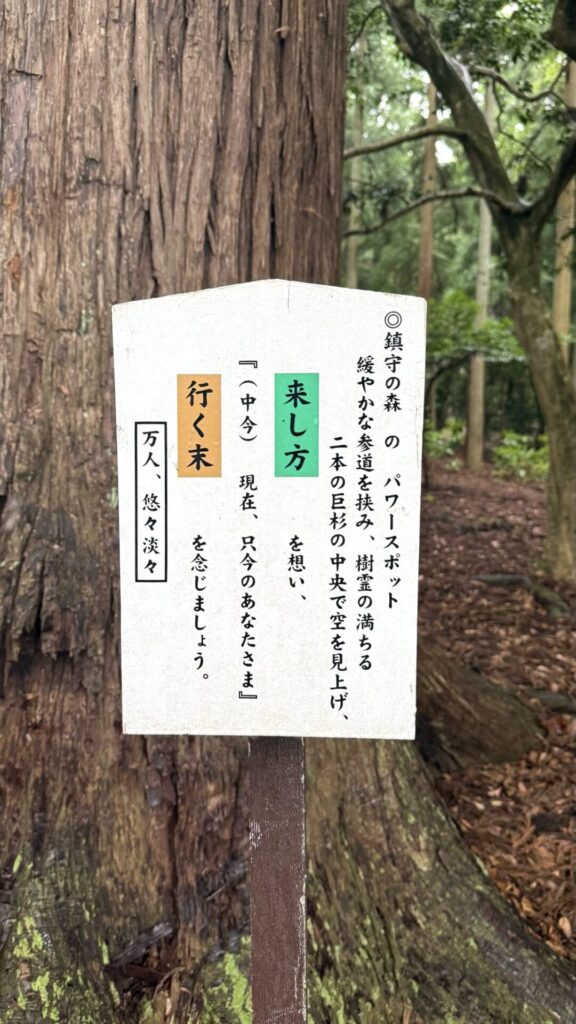 ◎鎮守の森 の パワースポット
緩やかな参道を挟み、樹霊の満ちる
二本の巨杉の中央で空を見上げ、
来し方 を想い、
『(中今) 現在、只今のあなたさま』
行く末 を念じましょう。
万人、悠々淡々